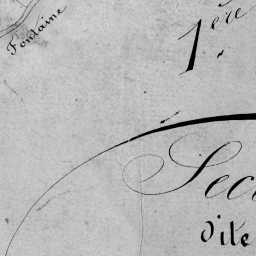 Fontaine
1ère
Sec
Dite